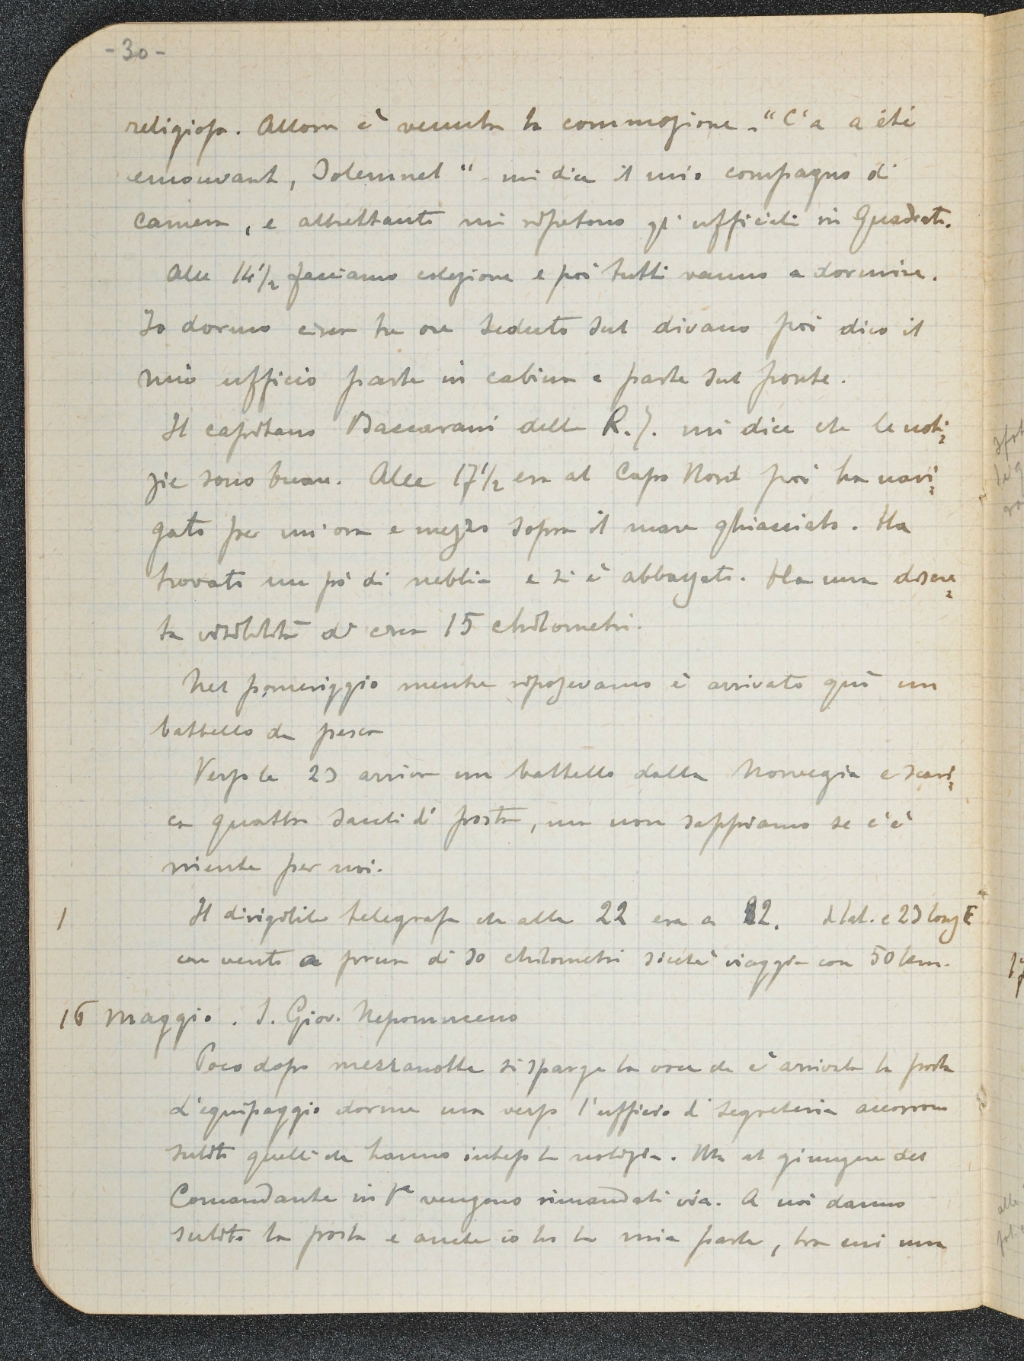 - 30 -
religiosa. Allora è venuta la commozione. "C'a a été
emouvant, Solennel" mi dice il mio compagno di
camera, e altrettanto mi ripetono gl' ufficiali in Quadrato.
Alle 14½ facciamo colazione e poi tutti vanno a dormire.
Io dormo circa tre ore seduto sul divano poi dico il
mio ufficio parte in cabina e parte sul ponte.
Il capitano Baccarani della R. J. mi dice che le noti=
zie sono buone. Alle 17½ era al Capo Nord poi ha navi=
gato per un'ora e mezzo sopra il mare ghiacciato. Ha
trovato un pò di nebbia e si è abbassato. Ha una discre=
ta visibilità di circa 15 chilometri.
Nel pomeriggio mentre riposavamo è arrivato quì un
battello da pesca
Verso le 23 arriva un battello dalla Norvegia e scari=
ca quattro sacchi di posta, ma non sappiamo se c'è
niente per noi.
1 Il dirigibile telegrafa che alle 22 era a 82. d lat. e 23 long E
con vento a prua di 30 chilometri sicché viaggia con 50 km.
16 maggio. S. Giov. Nepomuceno
Poco dopo mezzanotte si sparge la voce che è arrivata la posta
l'equipaggio dorme ma verso l'ufficio di segreteria accorrono
subito quelli che hanno inteso la notizia. Ma al giungere del
Comandante in 1ª vengono rimandati via. A noi danno
subito la posta e anche io ho la mia parte, tra cui una